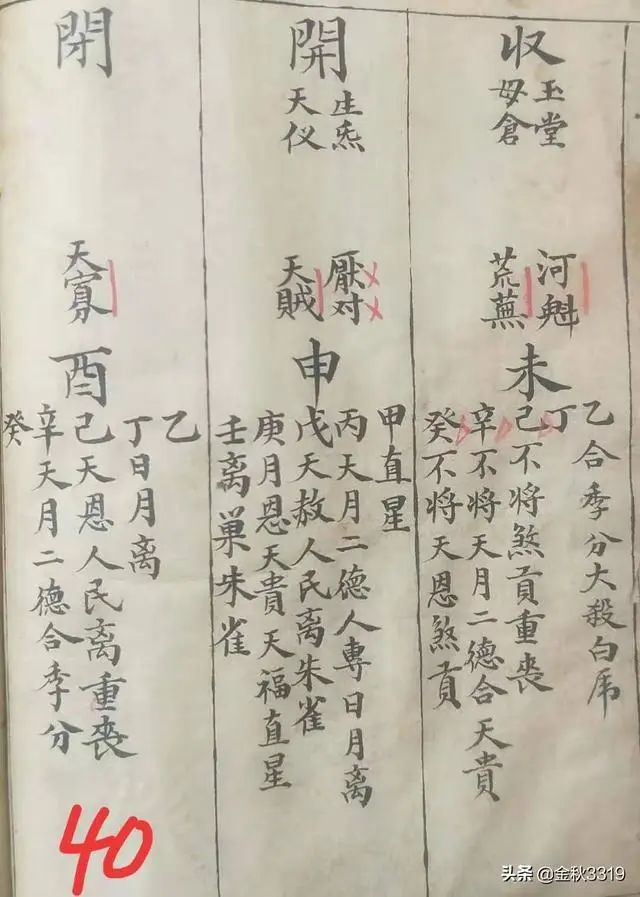 收
玉堂
母倉
河魁
荒蕪
未
乙合季分大殺白虎
丁
己不将煞貢重喪
辛不将天月二德合天貴
癸不将天恩煞貢
開
生炁
天仪
厭对
天賊
申
甲直星
丙天月二德人專日月离
戊天赦人民离朱雀
庚月恩天貴天福直星
壬离巢朱雀
閉
天寡
酉
乙
丁日月离
己天恩人民离重喪
辛天月二德合季分
癸
40
头条 @金秋3319